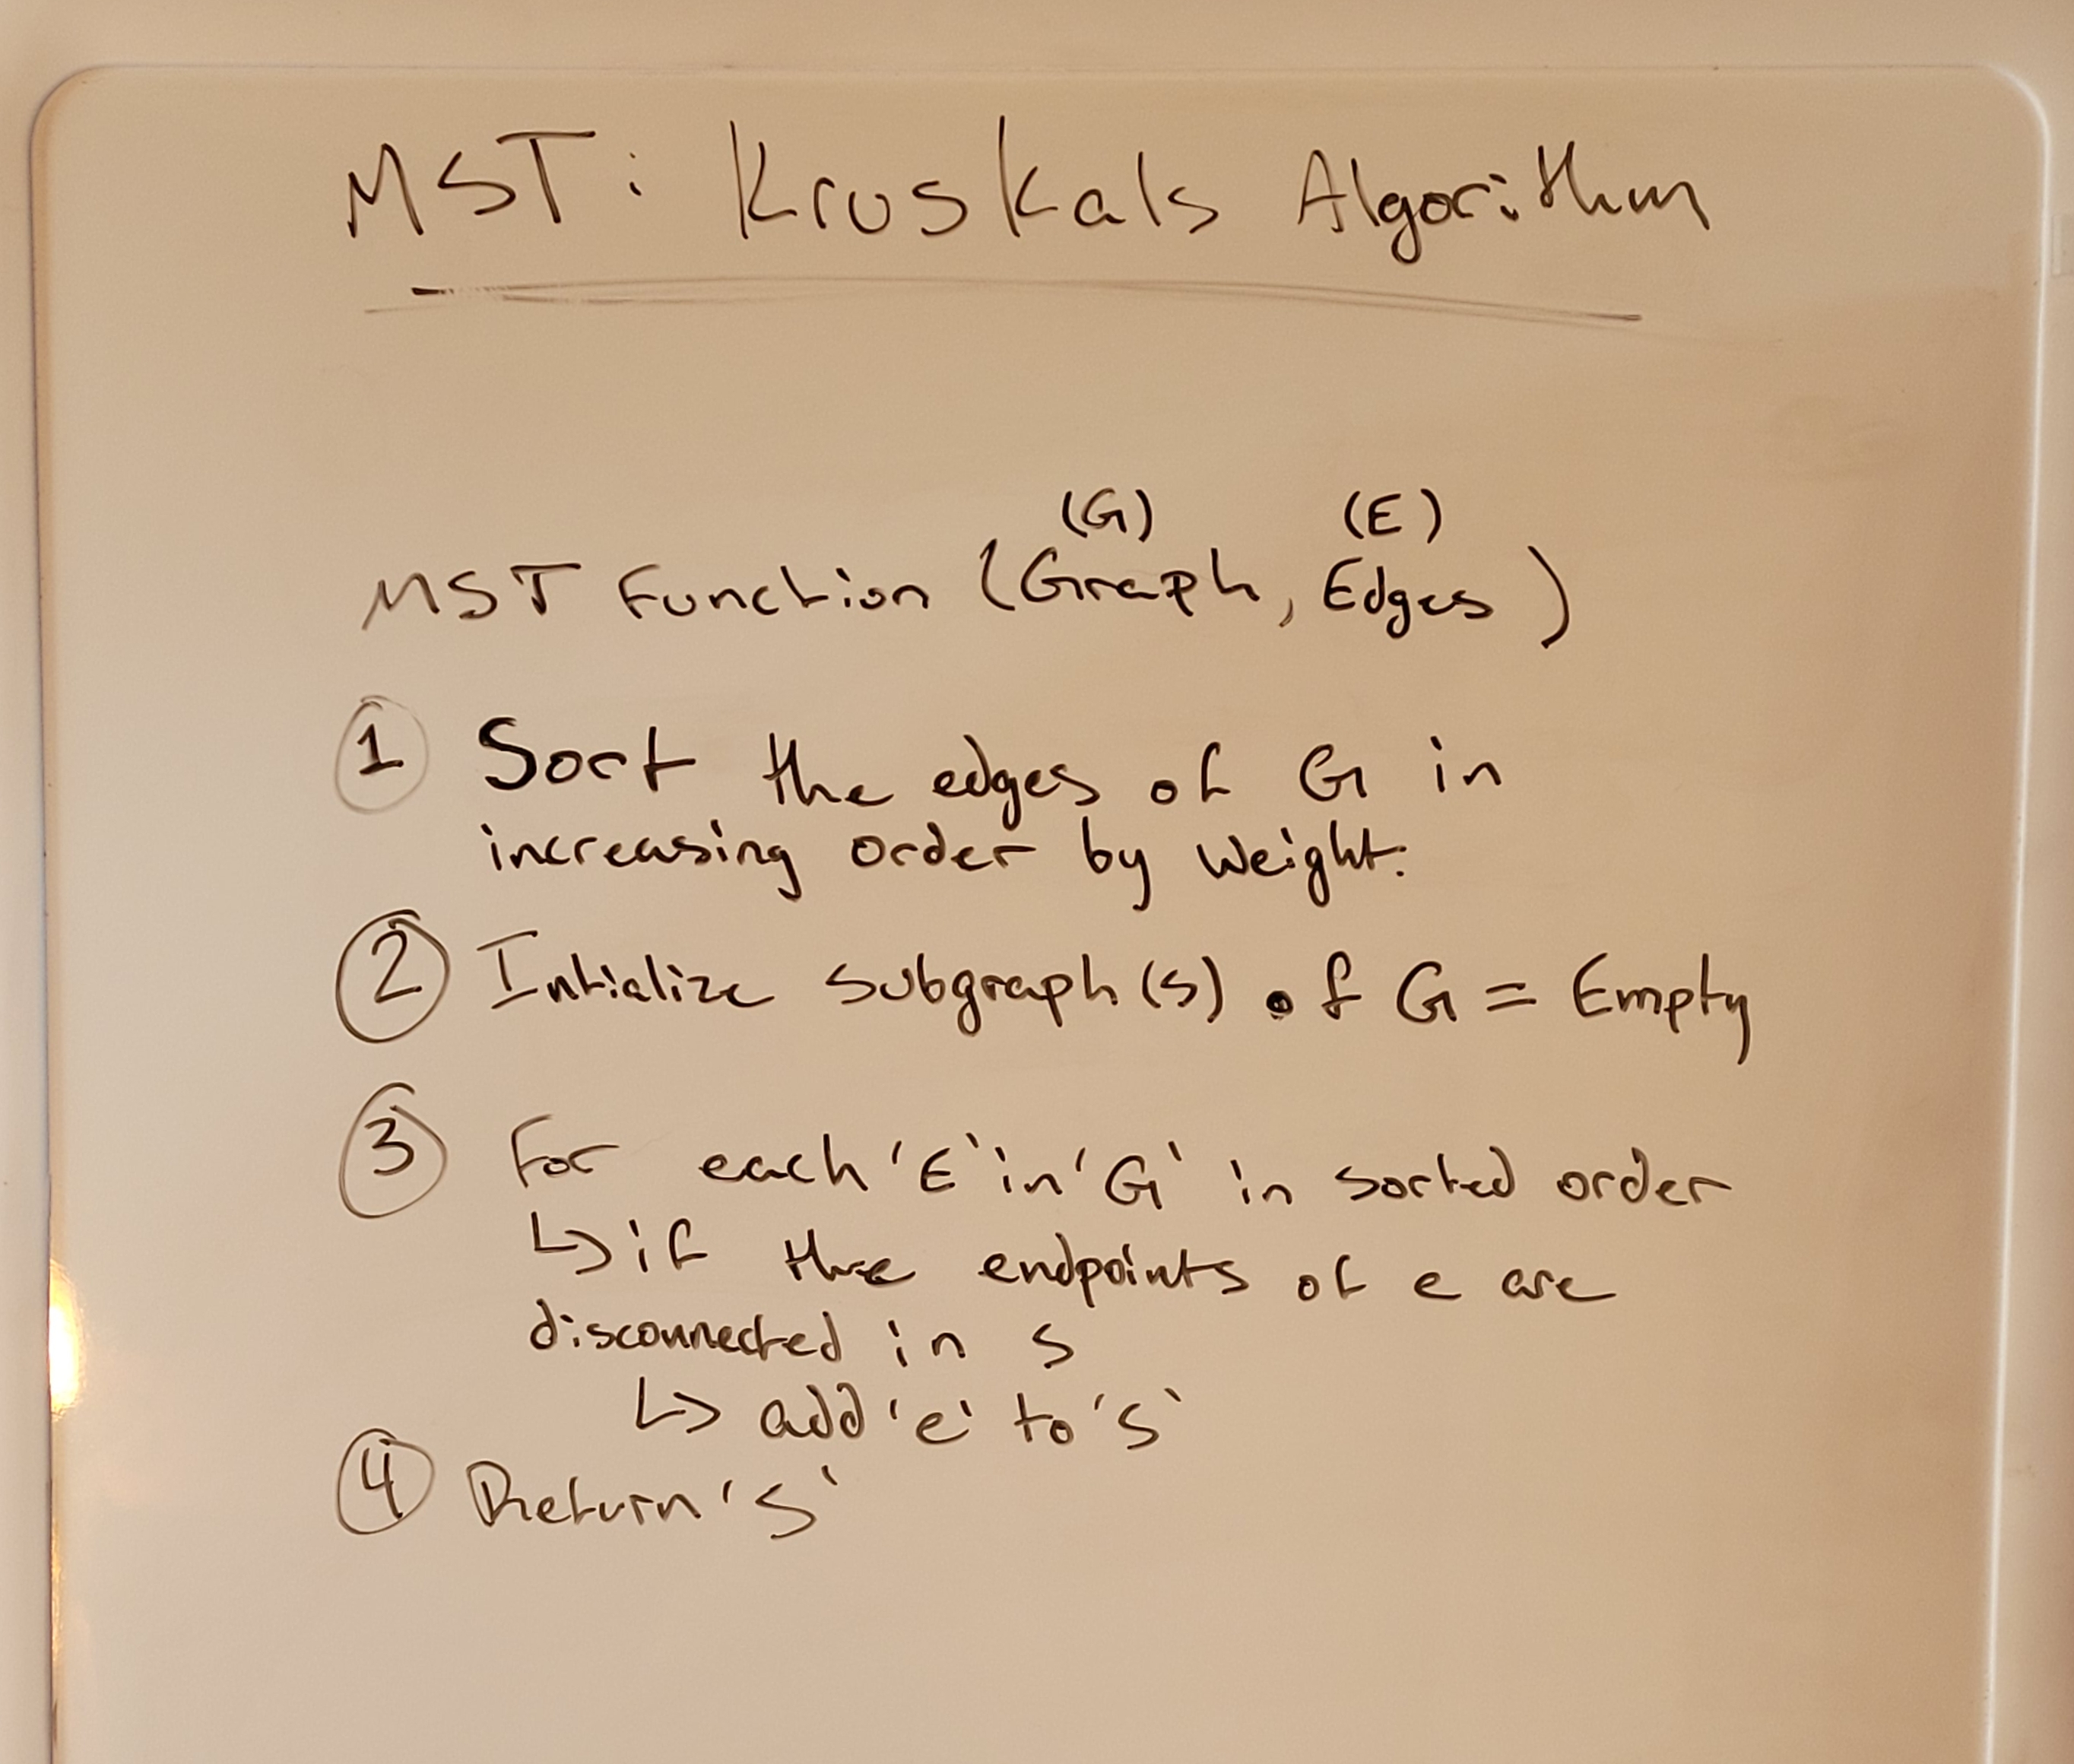 MST: Kruskals Algorithm
(G) (E)
MST Function (Graph, Edges)
1 Sort the edges of G in
increasing order by weight.
2 Intialize subgraph(s) of G = Empty
3 For each 'E' in 'G' in sorted order
↳ if the endpoints of e are
disconnected in s
↳ add 'e' to 's'
4 Return 's'